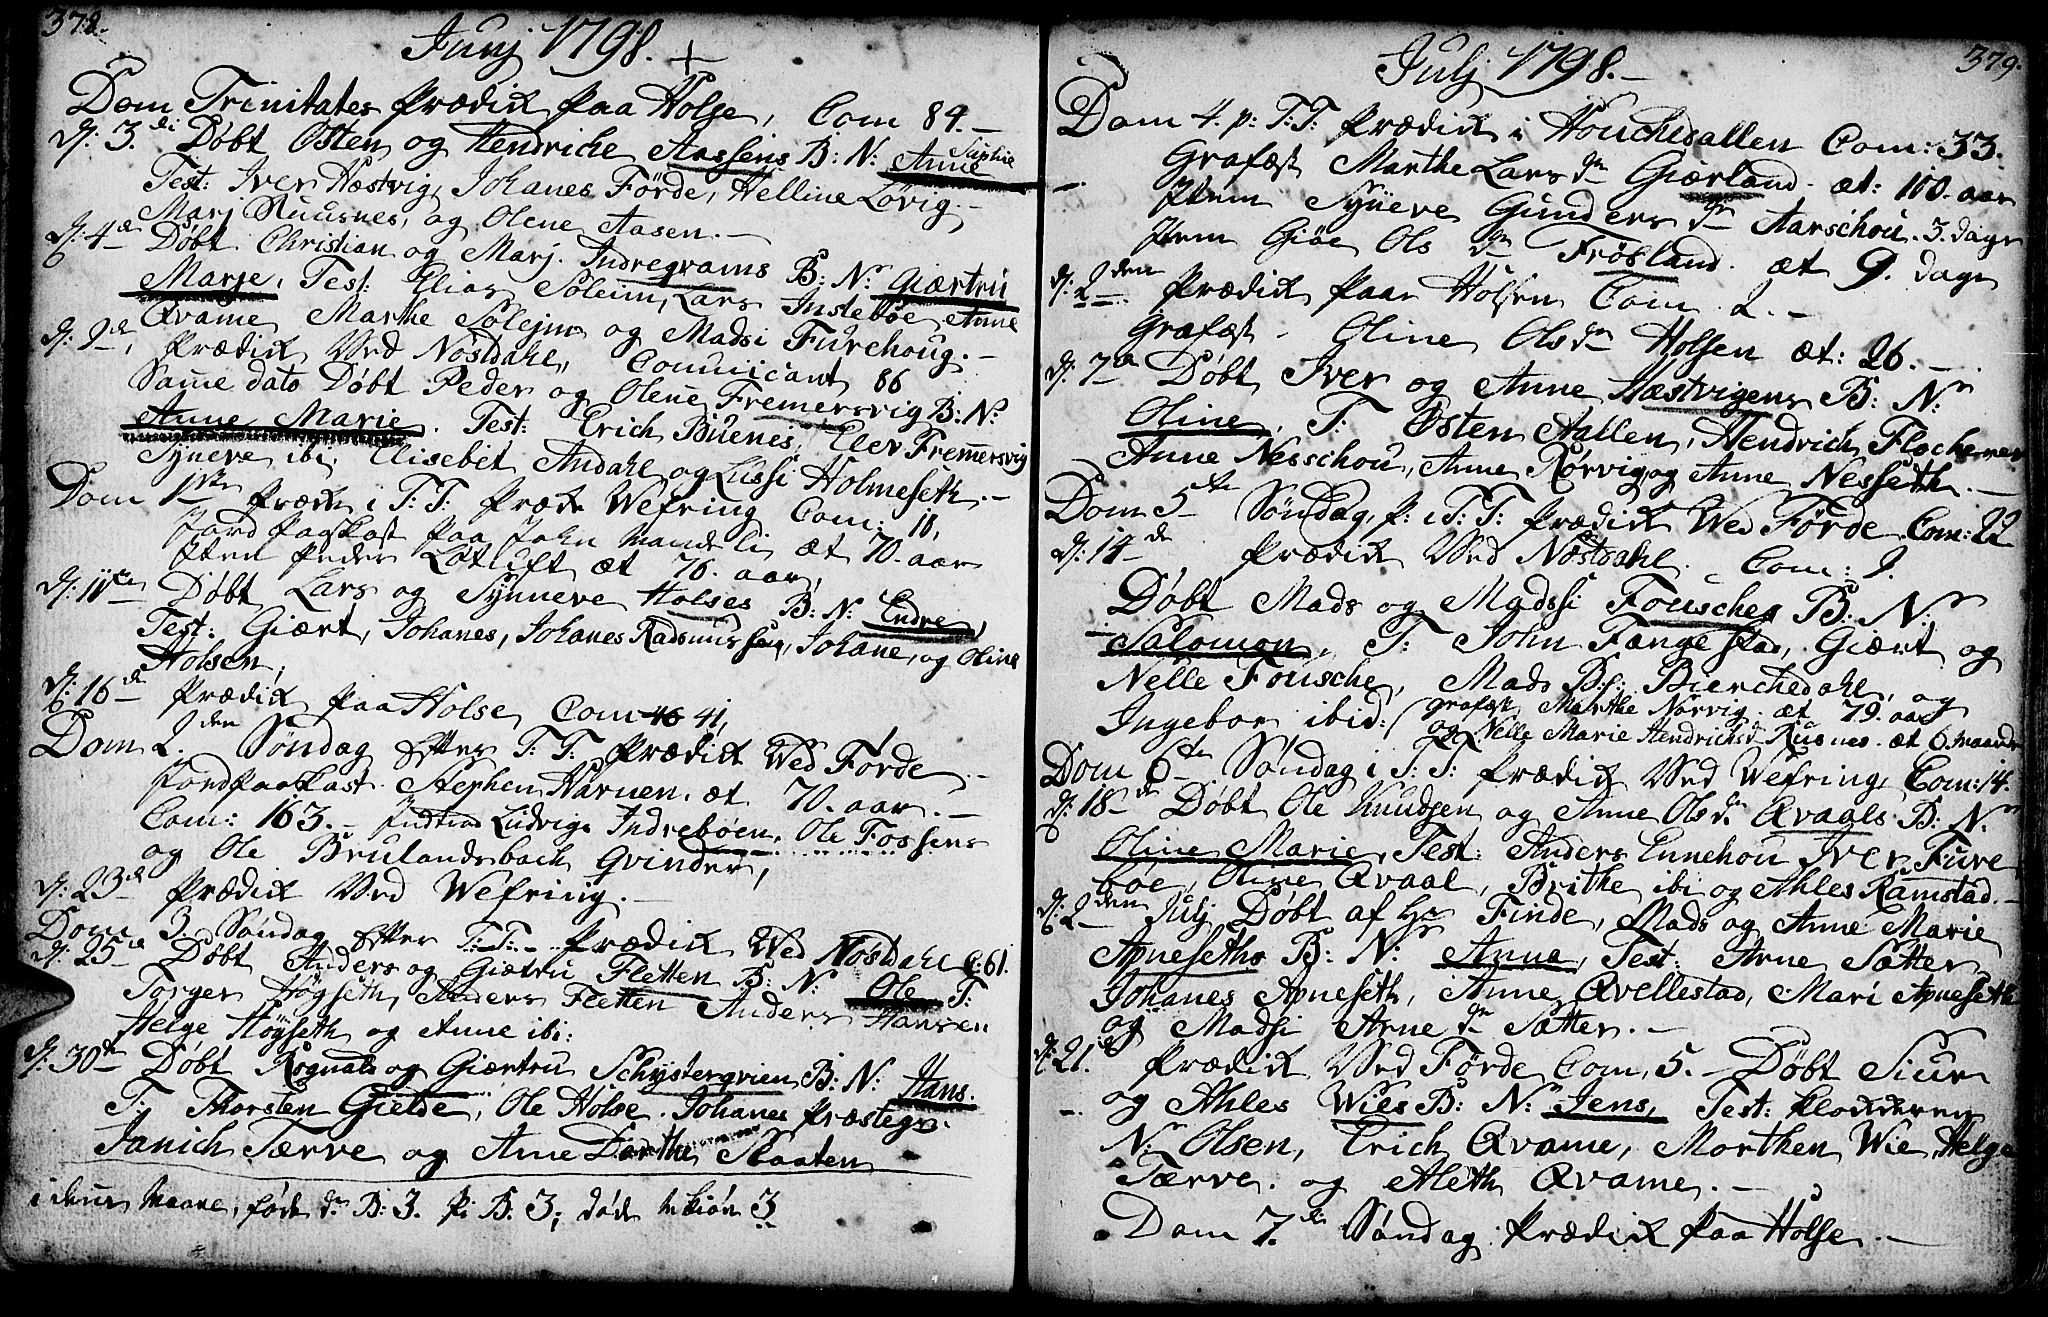 378.
Junj 1798.
Dom Trinitates Prædik paa Holse, Com 84.
d: 3.di Døbt Osten og Hendriche Aassens B: N: Anne Saphie
Test: Iver Hæstvig, Johanes Förde, Helline Lövig.
Marj Ruusnes, og Olene Aasen.
d: 4de Døbt Christian og Marj. Indregrams B: Nn Giærtru
Marje, Test: Elias Soleim, Lars Instebøe, Anne
Qvame Marthe Solejm og Madsi Furehoug.
d: 9de, Prædik Ved Nöstdahl, Comunicant 86
Same dato Døbt Peder og Olene Fremersvig B: N:
Anne Marie. Test: Erich Buenes, Elev Fremersvig
Syneve ibi, Elisebet Andahl og Lussi Holmeseth.
Dom 1ste Prædik i T: T: Præd Wefring Com: 18,
Jord Paaskast paa John æt 70. aar
Item Peder æt 76. aar,
d: 11te Døbt Lars og Synneve Holses B: N: Endre,
Test: Giært, Johanes, Johanes Rasmussen, Johane, og Oline
Holsen,
d: 16de Prædik paa Holse Com 46 41,
Dom 2den Søndag Efter T: T. Prædik Wed Förde.
Jordpaakast Stephen Harnen. æt 70. aar.
Com: 163. Ludvig Indrebøen, Ole Fossens
og Ole Brulandsbach Qvinder,
d: 23de Prædik Ved Wefring.
Dom 3. Søndag Efter T: T: Prædik Wed Nöstdahl C: 61.
d: 25de Døbt Anders og Giætru Fletten B: N: Ole T:
Torger Högseth, Anders Fletten Anders Hansen
Helge Högseth og Anne ibi:
d: 30te Døbt Rognald og Giærtru Schystergvien B: N: Hans.
T. Thorsten Gielde, Ole Holse. Johanes Præsteg.
Janich Tærve og Ane Dorthe Staaten
i denne Maane, föde B: 3. P: B. 3, døde 3
379.
Julj 1798.
Dom 4. p: T: T: Prædik i Houchedallen Com: 33.
Grafæst Marthe Lars dn Giærland. æt: 100. aar
Item Syneve Gunders dn Aarschou. 3. dage
Item Giöe Ols dn Frösland. æt 9. dage
d: 2den Prædik paa Holsen Com. 2.
Grafæst Oline Olsdn Holsen æt: 26.
d: 7de Døbt Iver og Anne Hæstvigens B: Nn
Oline, T: Østen Aallen, Hendrich Flochenes
Anne Nesschou, Anne Rörvig, og Anne Nesseth.
Dom 5te Søndag, p: T: T: Prædik Wed Förde Com: 22
d: 14de Prædik Ved Nöstdahl. Com: 9.
Døbt Mads og Madssi Fousches B: Nn
Salomon, T: John Fangestad, Giært og
Nelle Fousche, Mads Bierchedahl, og
Ingebor ibid: (Grafæst Marthe Norvig. æt 79. aar
og Nelle Marie Hendrichsd. Rusnes. æt 6. maaneder
Dom 6te Søndag i T: T: Prædik Ved Wefring, Com: 14.
d: 18de Døbt Ole Knudsen og Anne Olsdn Qvaals B: Nn
Oline Marie, Test: Anders Ennehou Iver Fure
böe, Oline Qvaal, Brithe ibi og Ahles Ramstad.
d: 2den Julj Døbt af Hr Finde, Mads og Anne Marie
Apneseths B: N: Anna, Test: Arne Sætter
Johanes Apneseth, Anne Qvellestad, Mari Apneseth
og Madsi Arne dn Sætter.
d: 21de Prædik Ved Förde Com, 5. Døbt Siur
og Ahles Wies B: N: Jens, Test: Klockeren
Nn Olsen, Erich Qvame, Morthen Wie, Helge
Tærve. og Aleth Qvame.
Dom 7de Søndag Prædik paa Holse.